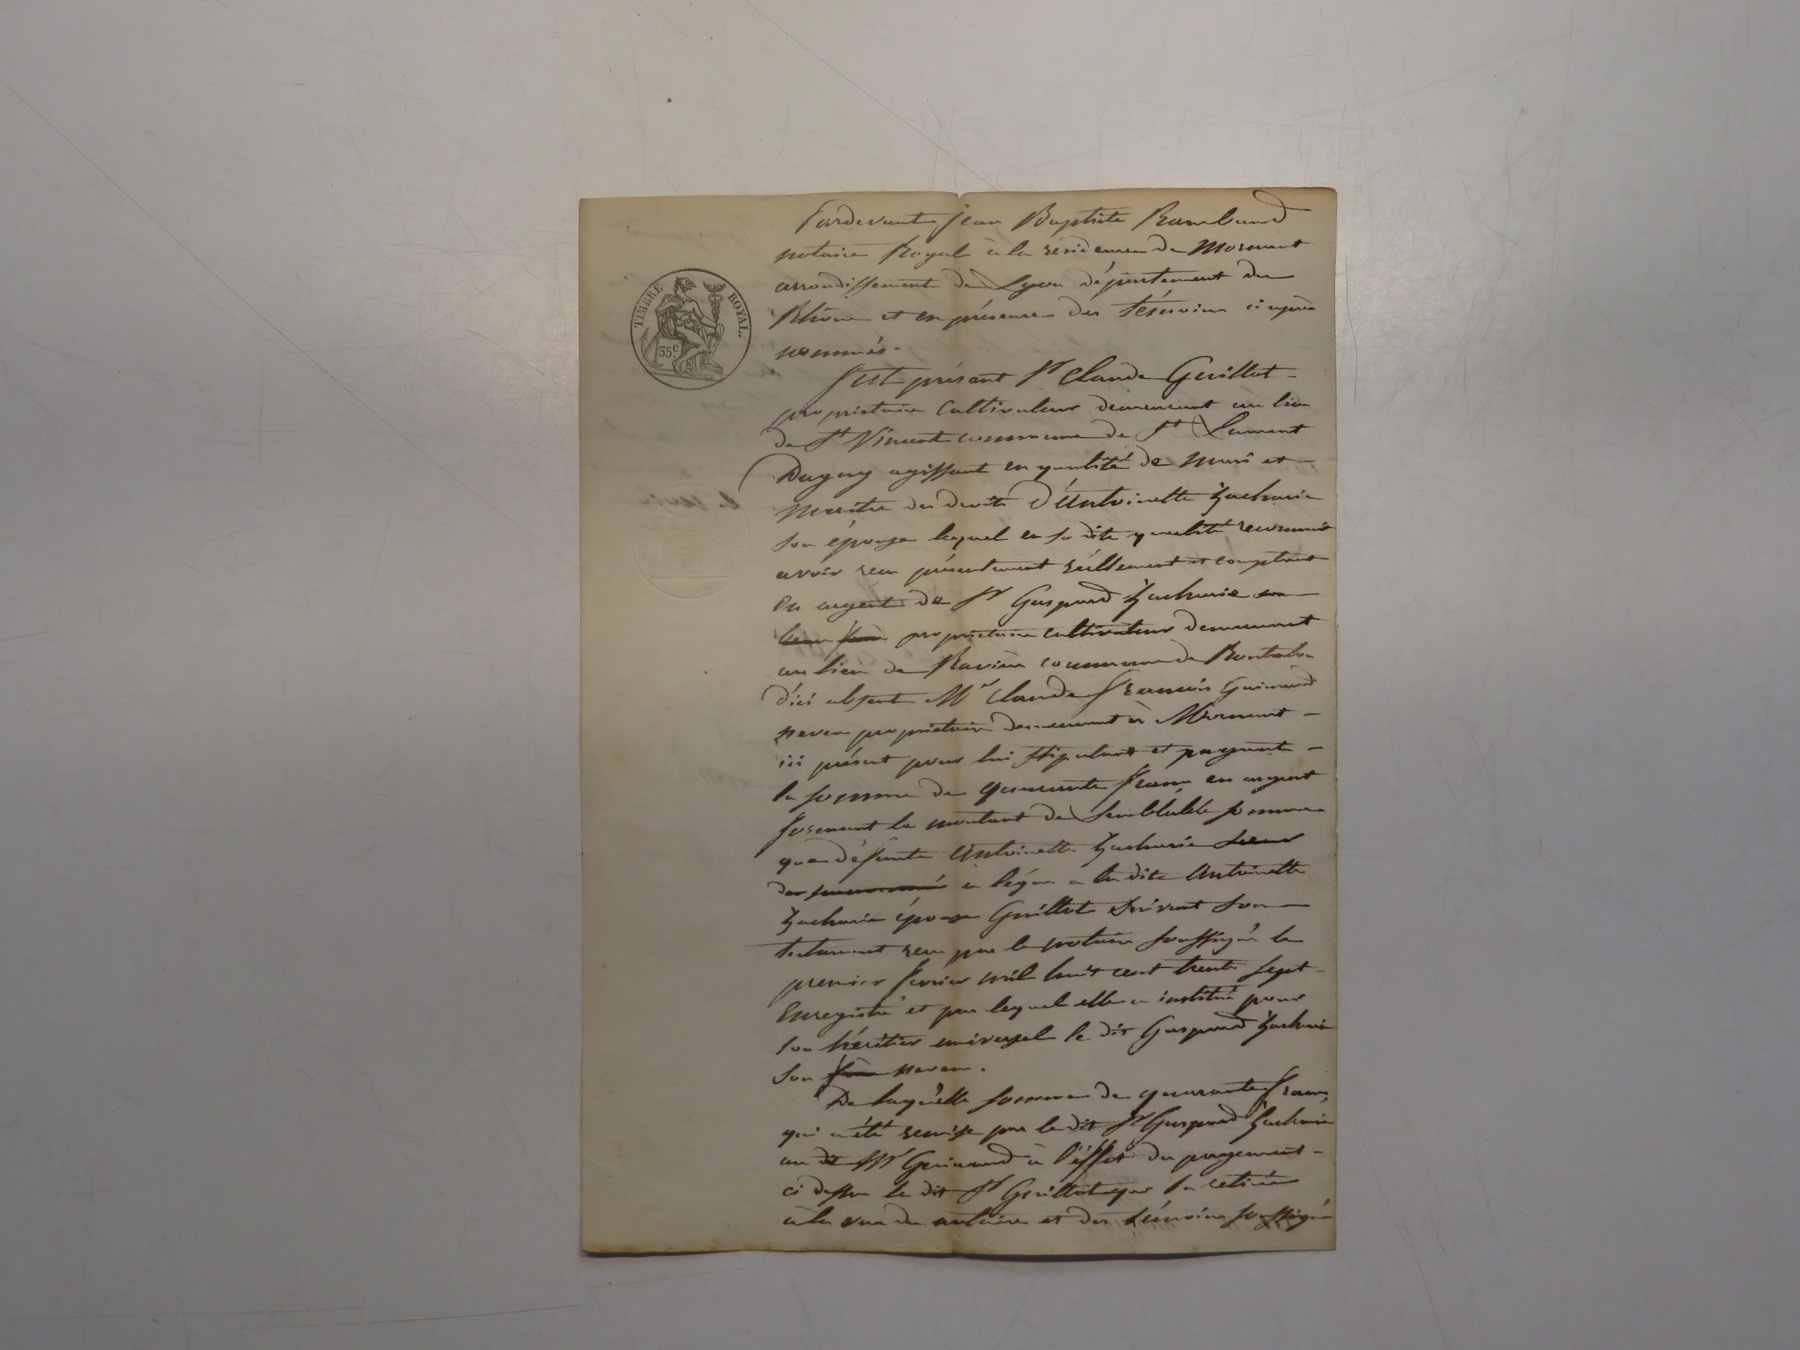 TIMBRE ROYAL.
35 c
Pardevant Jean Baptiste Rambaud
notaire Royal à la résidence de Mornant
arrondissement de Lyon département du
Rhône et en présence des témoins ci après
nommés.
S'est présent Sr Claude Guillot
propriétaire cultivateur demeurant au lieu
de St Vincent commune de St Laurent
Dagny agissant en qualité de mari et
maitre des droits d'Antoinette Zacharie
son épouse lequel en sa dite qualité reconnait
avoir reçu présentement réellement et comptant
en argent de Sr Gaspard Zacharie son
beau frère propriétaire cultivateur demeurant
au lieu de Ravière commune de
d'ici absent Mr Claude François Guinand
neveu propriétaire demeurant à Mornant
ici présent pour lui stipulant et payant
la somme de quarante francs en argent
formant le montant de semblable somme
que défunte Antoinette Zacharie soeur
des susnommés a légué a la dite Antoinette
Zacharie épouse Guillot suivant son
testament reçu par le notaire soussigné le
premier février mil huit cent trente sept
Enregistré et par lequel elle a institué pour
son héritier universel le dit Gaspard Zacharie
son frère neveu.
De laquelle somme de quarante francs
qui a été remise par le dit Sr Gaspard Zacharie
au dit Mr Guinand à l'effet du payement
ci dessus le dit Sr Guillot qui l'a retirée
à la vue du notaire et des témoins soussignés